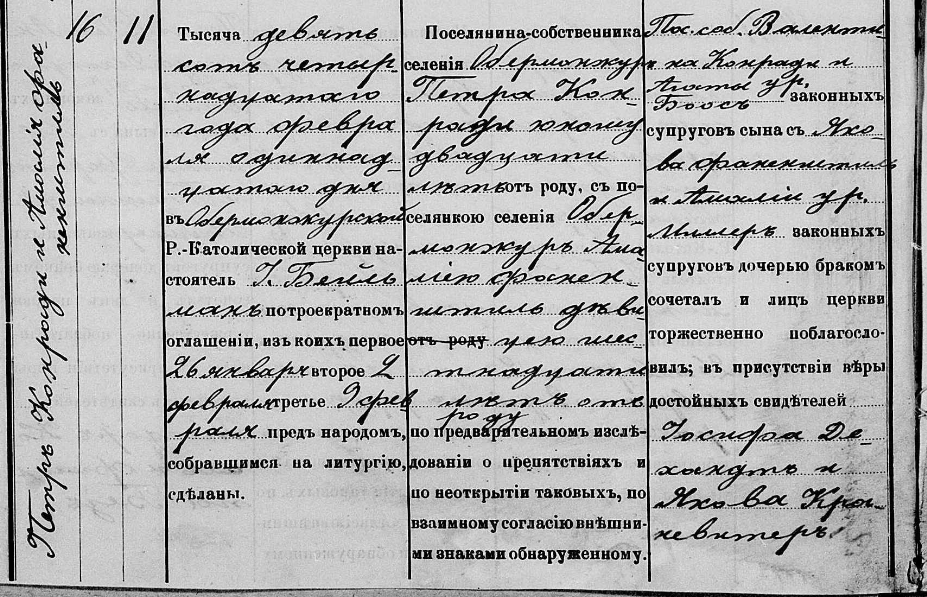 Петръ Конради и Амалія Фра-
кенштиль
16
11
Тысяча девять
сотъ четыр-
надцатаго
года февра
ля одиннад
цатаго дня
въ Обермонжурской
Р.-Католической церкви на-
стоятель І. Бейль
манъ по троекратномъ
оглашеніи, изъ коихъ первое
26 января второе 2
февраля третье 9 фев
раля предъ народомъ,
собравшимся на литургію,
сдѣланы.
Поселянина-собственника
селенія Обермонжуръ
Петра Кон-
ради юношу
двадцати
лѣтъ отъ роду, съ по-
селянкою селенія Обер-
монжуръ Ама
ліею Факен-
штиль дѣви
отъ роду цею шес
тнадцати
лѣтъ отъ
роду
по предварительномъ изслѣ-
дованіи о препятствіяхъ и
по неоткрытіи таковыхъ, по
взаимному согласію внѣшни-
ми знаками обнаруженному.
Пос. соб. Валенти-
на Конради и
Агаты ур.
Боосъ законныхъ
супруговъ сына съ Яко-
ва Факенштиль
и Амаліи ур.
Миллеръ законныхъ
супруговъ дочерью бракомъ
сочеталъ и лицъ церкви
торжественно поблагосло-
вилъ; въ присутствіи вѣры
достойныхъ свидѣтелей
Іосифа Де-
хандтъ и
Якова Кро-
невитеръ